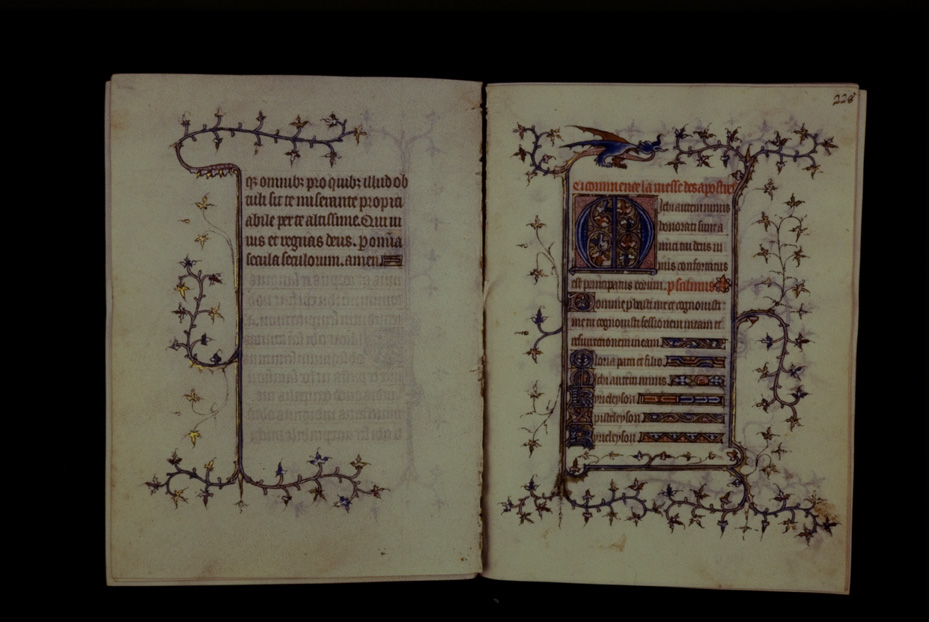 q; omnib; pro quib; illud ob
tuli sit te miserante propici
abile per te altissime. Qui ui
uis et regnas deus. P omnia
secula seculorum. amen
226
Ci commence la messe des apostres
Ichi autem nimis
honorati sunt a
mici tui deus ni
mis confortatus
est principatus eorum. psalmus
Domine probasti me et cognouisti
me tu cognouisti sessionem meam et
resurrectionem meam
Gloria patri et filio
Michi autem nimis
Kyrieleyson
Xpisteleyson
Kyrieleyson